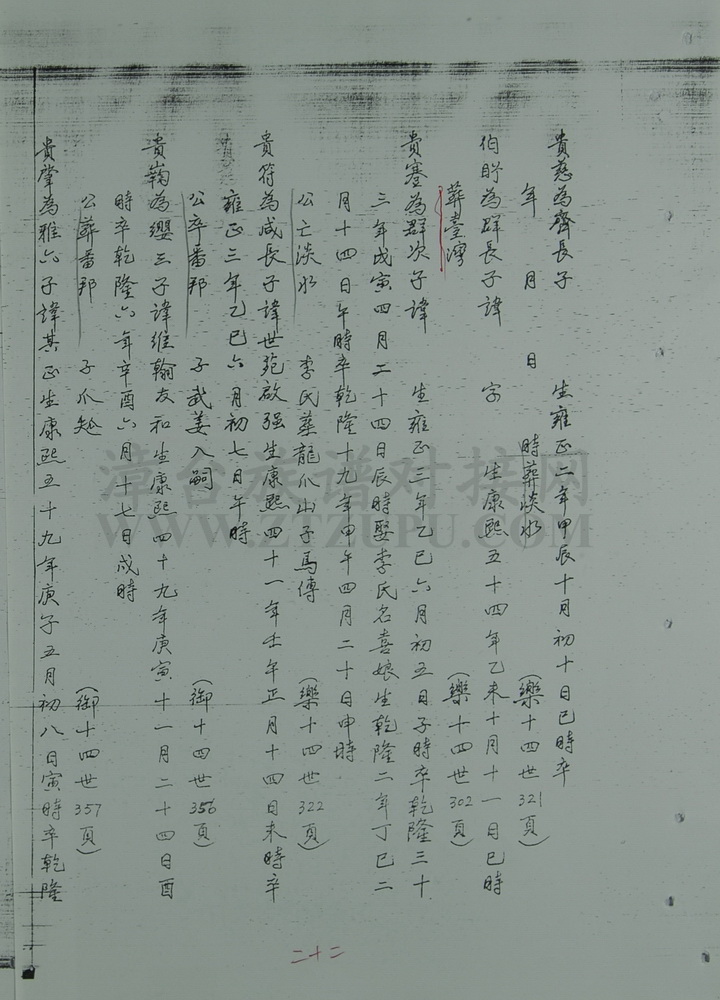 貴慈為齊長子　生雍正二年甲辰十月初十日巳時卒
年　月　日　時葬淡水　(樂十四世321頁)
伯盱為群長子諱　字　生康熙五十四年乙未十月十一日巳時
葬臺灣　(樂十四世302頁)
貴塞為群次子諱　生雍正三年乙巳六月初五日子時卒乾隆三十
三年戊寅四月二十四日辰時娶李氏名喜娘生乾隆二年丁巳二
月十四日午時卒乾隆十九年甲午四月二十日申時
公亡淡水　李氏葬龍爪山子馬傳　(樂十四世322頁)
貴符為咸長子諱世苑啟强生康熙四十一年壬午正月十四日未時卒
雍正三年乙巳六月初七日午時
公卒番邦　子武姜入嗣　(御十四世356頁)
貴鞠為纓三子諱維翰友和生康熙四十九年庚寅十一月二十四日酉
時卒乾隆六年辛酉六月十七日戍時
公葬番邦　子爪　(御十四世357頁)
貴肇為雅六子諱其正生康熙五十九年庚子五月初八日寅時卒乾隆
二十二
漳台族谱对接网
WWW.ZTZUPU.COM